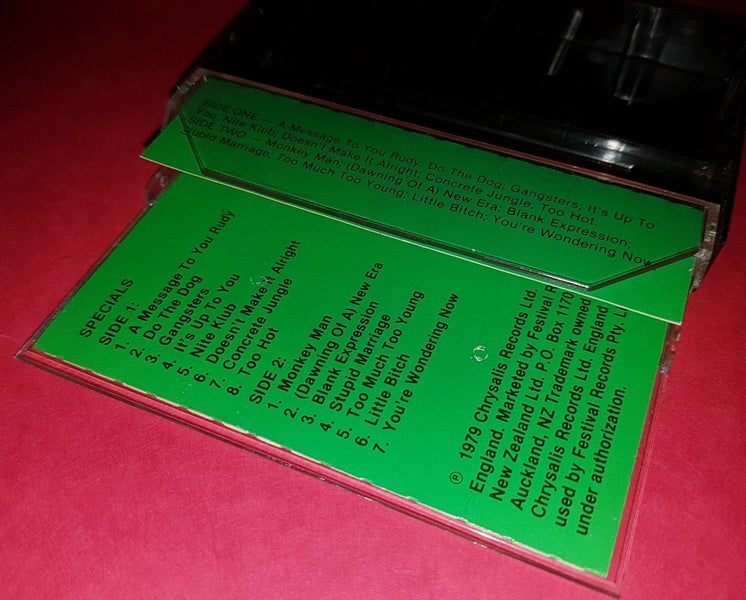 SIDE ONE — A Message To You Rudy Do The Dog; Gangsters; It's Up To
You; Nite Klub; Doesn't Make It Alright, Concrete Jungle; Too Hot.
SIDE TWO — Monkey Man, (Dawning Of A) New Era; Blank Expression;
Stupid Marriage; Too Much Too Young; Little Bitch; You're Wondering Now
SPECIALS
SIDE 1:
1. A Message To You Rudy
2. Do The Dog
3. Gangsters
4. It's Up To You
5. Nite Klub
6. Doesn't Make it Alright
7. Concrete Jungle
8. Too Hot
SIDE 2:
1. Monkey Man
2. (Dawning Of A) New Era
3. Blank Expression
4. Stupid Marriage
5. Too Much Too Young
6. Little Bitch
7. You're Wondering Now
℗ 1979 Chrysalis Records Ltd.
England. Marketed by Festival
New Zealand Ltd. P.O. Box 1170
Auckland, NZ Trademark owned
Chrysalis Records Ltd. England
used by Festival Records Pty.
under authorization.